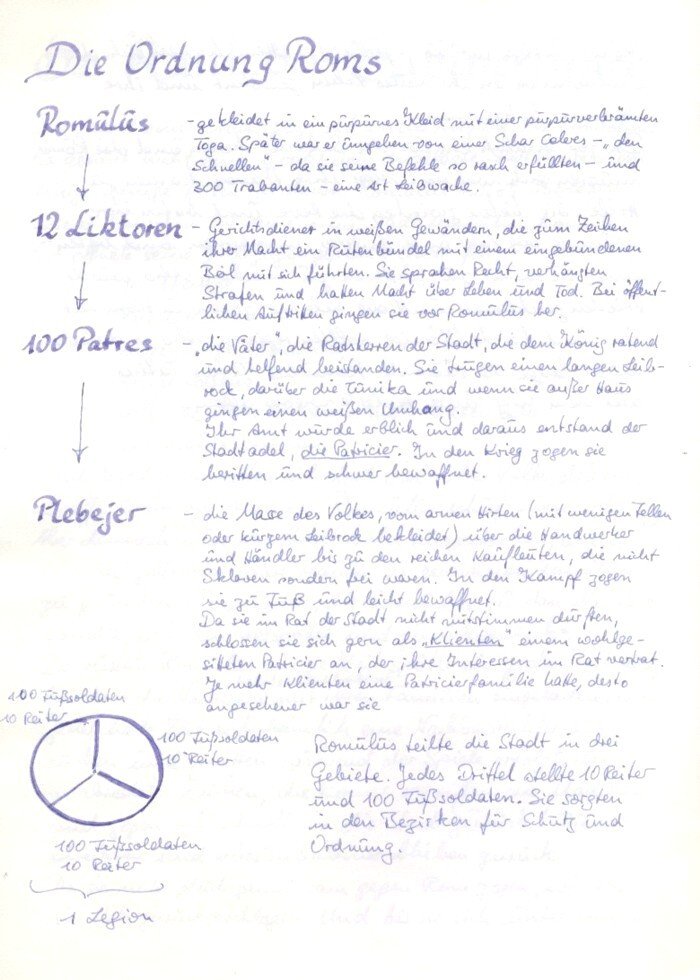 Die Ordnung Roms
Romulus
- gekleidet in ein purpurnes Kleid mit einer purpurverbrämten
Toga. Später war er umgeben von einer Schar Celeres - „den
Schnellen" - da sie seine Befehle so rasch erfüllten - und
300 Trabanten - eine Art Leibwache.
12 Liktoren
- Gerichtsdiener in weißen Gewändern, die zum Zeichen
ihrer Macht ein Rutenbündel mit einem eingebundenen
Beil mit sich führten. Sie sprachen Recht, verhängten
Strafen und hatten Macht über Leben und Tod. Bei öffent-
lichen Auftritten gingen sie vor Romulus her.
100 Patres
- „die Väter", die Ratsherren der Stadt, die dem König ratend
und helfend beistanden. Sie trugen einen langen Leib-
rock, darüber die Tunika und wenn sie außer Haus
gingen einen weißen Umhang.
Ihr Amt wurde erblich und daraus entstand der
Stadtadel, die Patricier. In den Krieg zogen sie
beritten und schwer bewaffnet.
Plebejer
- die Masse des Volkes, vom armen Hirten (mit wenigen Fellen
oder kurzem Leibrock bekleidet) über die Handwerker
und Händler bis zu den reichen Kaufleuten, die nicht
Sklaven sondern frei waren. In den Kampf zogen
sie zu Fuß und leicht bewaffnet.
Da sie im Rat der Stadt nicht mitstimmen durften,
schlossen sie sich gern als „Klienten" einem wohlge-
sitteten Patricier an, der ihre Interessen im Rat vertrat.
Je mehr Klienten eine Patricierfamilie hatte, desto
angesehener war sie
100 Fußsoldaten
10 Reiter
100 Fußsoldaten
10 Reiter
100 Fußsoldaten
10 Reiter
1 Legion
Romulus teilte die Stadt in drei
Gebiete. Jedes Drittel stellte 10 Reiter
und 100 Fußsoldaten. Sie sorgten
in den Bezirken für Schutz und
Ordnung.